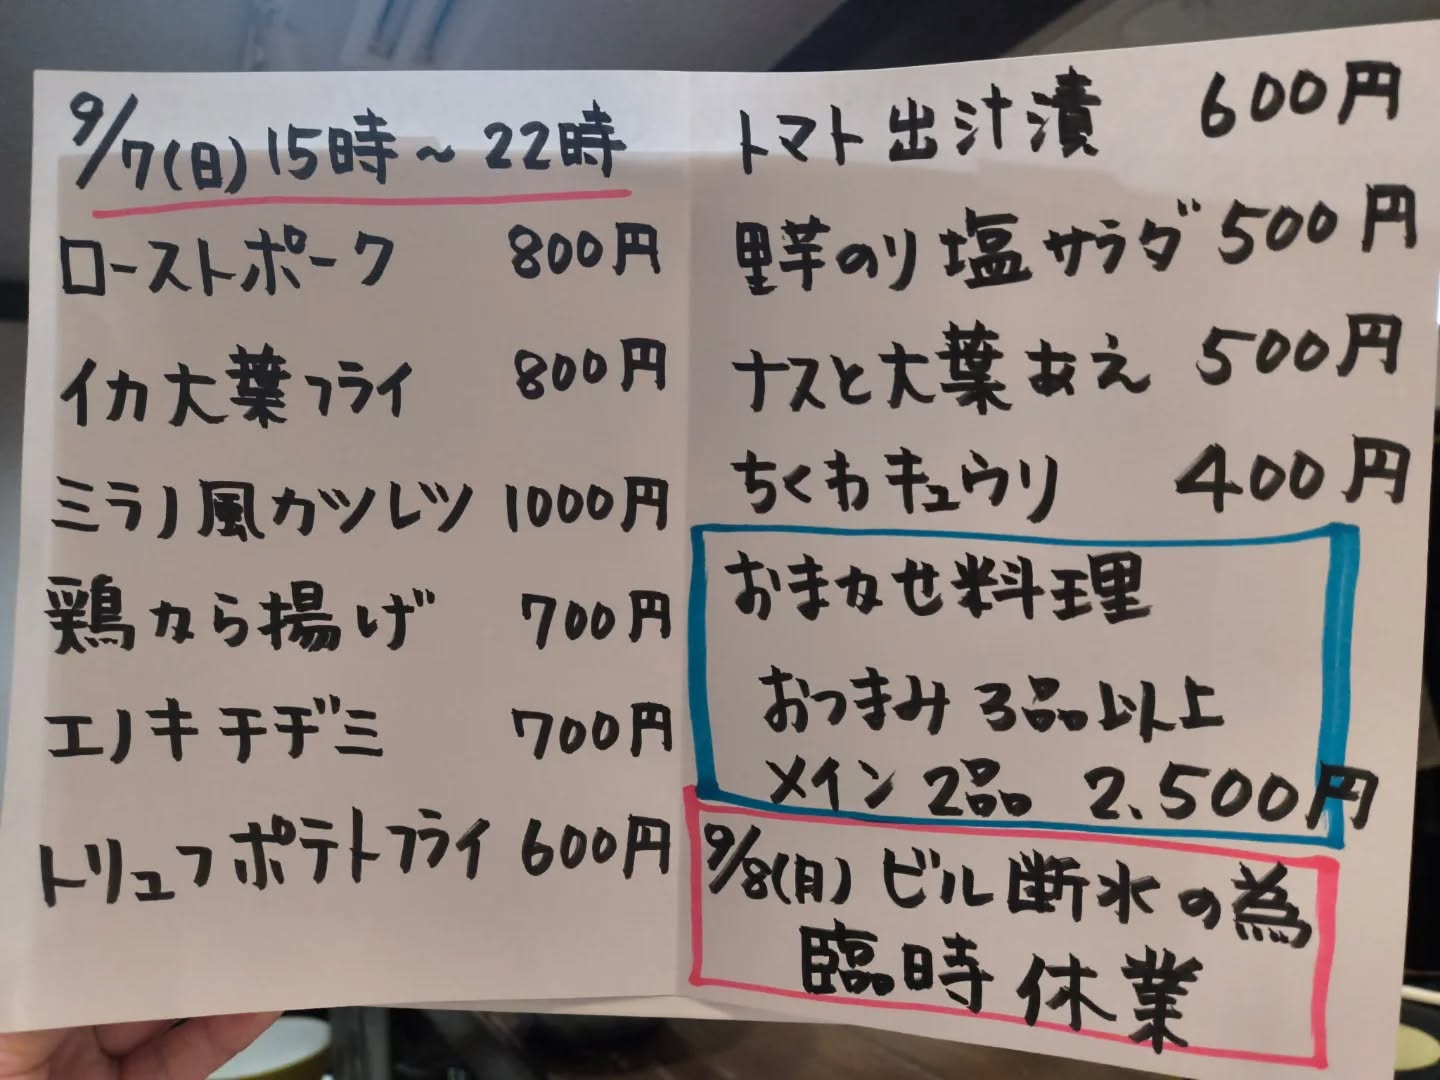 9/7(日)15時~22時
ローストポーク 800円
イカ大葉フライ 800円
ミラノ風カツレツ 1000円
鶏から揚げ 700円
エノキチヂミ 700円
トリュフポテトフライ 600円
トマト出汁漬 600円
里芋のり塩サラダ 500円
ナスと大葉あえ 500円
ちくわキュウリ 400円
おまかせ料理
おつまみ3品以上
メイン2品 2.500円
9/8(月)ビル断水の為
臨時休業